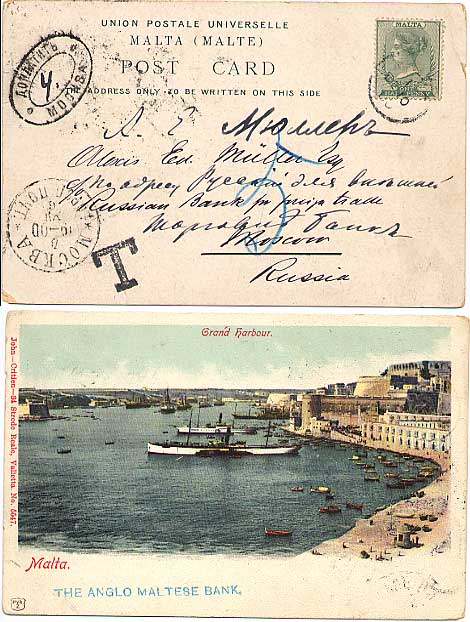 UNION POSTALE UNIVERSELLE
MALTA (MALTE)
POST CARD
THE ADDRESS ONLY TO BE WRITTEN ON THIS SIDE
MALTA
ДОПЛАТИТЬ
4.
МОСКВА
Мюллеръ
Alexis Ed. Müller Esq
По адресу Русскій для внѣшней
Russian Bank
Торговли Банкъ
Moscow
Russia
МОСКВА
T
Grand Harbour.
John Critien—34 Strada Reale, Valletta No. 5547.
Malta.
THE ANGLO MALTESE BANK.